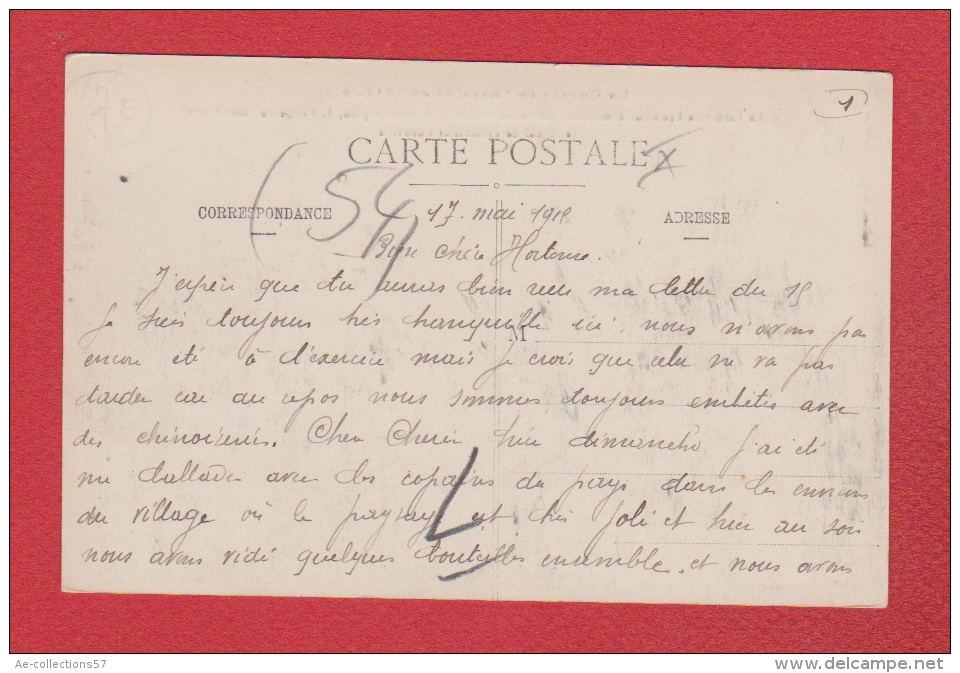 1
CARTE POSTALE
CORRESPONDANCE
ADRESSE
17 mai 1915
Bien chère Hortense.
J'espère que tu auras bien reçu ma lettre du 15
Je suis toujours très tranquille ici, nous n'avons pas
M
encore été à l'exercice mais je crois que cela ne va pas
tarder car au repos nous sommes toujours embêtés avec
des chinoiseries. Chère Chérie hier dimanche j'ai été
me ballader avec des copains du pays dans les environs
du village où le paysage est très joli et hier au soir
nous avons vidé quelques bouteilles ensemble, et nous avons
Ae-collections57
www.delcampe.net